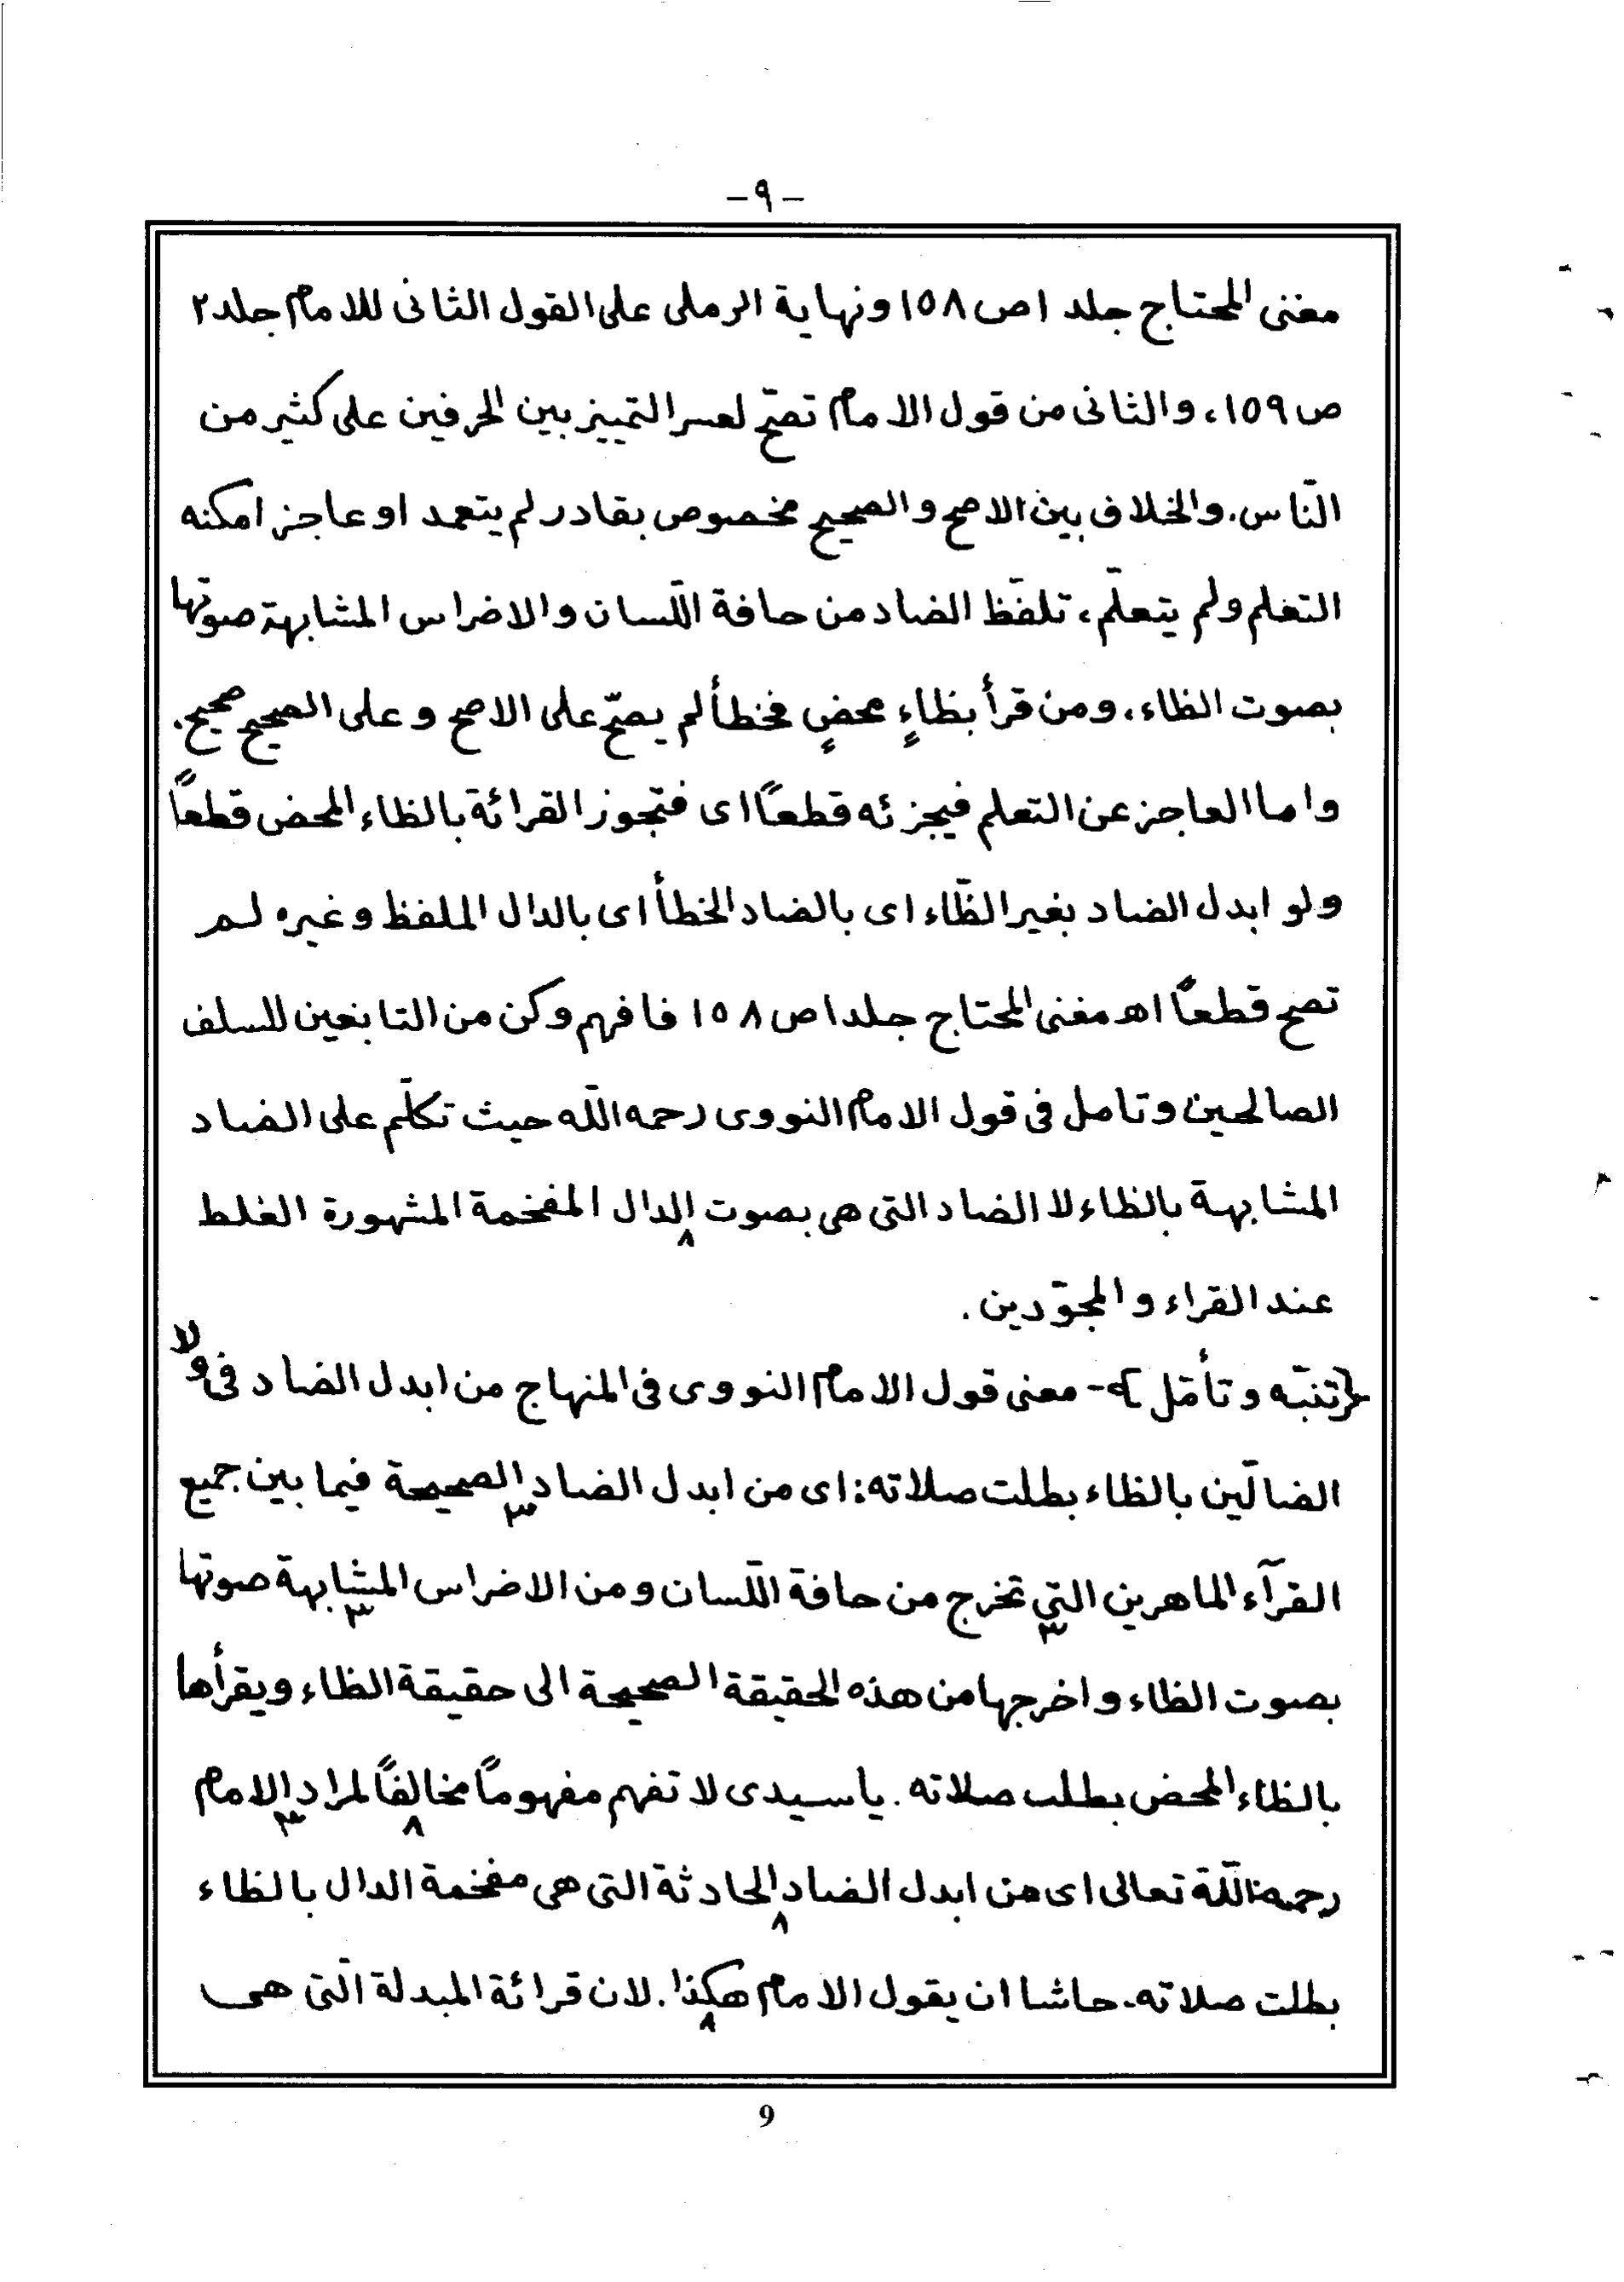 -٩-
مغنى المحتاج جلد ١ ص ١٥٨ ونهاية الرملى على القول الثانى للامام جلد ٢
ص ١٥٩، والثانى من قول الامام تصحّ لعسر التمييز بين الحرفين على كثير من
النّاس. والخلاف بين الاصح والصحيح مخصوص بقادر لم يتعمد او عاجز امكنه
التعلم ولم يتعلّم، تلفّظ الضاد من حافة اللّسان والاضراس المشابهة صوتها
بصوت الظاء، ومن قرأ بظاءٍ محضٍ فخطأ لم يصحّ على الاصح وعلى الصحيح صحيح.
واما العاجز عن التعلم فيجزئه قطعاً اى فتجوز القرائة بالظاء المحض قطعاً
ولو ابدل الضاد بغير الظّاء اى بالضاد الخطأ اى بالدال الملفظ وغيره لم
تصح قطعاً اه مغنى المحتاج جلد ١ ص ١٥٨ فافهم وكن من التابعين للسلف
الصالحين وتامل فى قول الامام النووى رحمه اللّه حيث تكلّم على الضاد
المشابهة بالظاء لا الضاد التى هى بصوت الدال المفخمة المشهورة الغلط
٨
عند القراء والمجوّدين.
{تنبّه وتأمّل}- معنى قول الامام النووى فى المنهاج من ابدل الضاد فى ولا
الضالّين بالظاء بطلت صلاته: اى من ابدل الضاد الصحيحة فيما بين جميع
٣
القرّآء الماهرين التى تخرج من حافة اللّسان ومن الاضراس المشابهة صوتها
٣ ٣
بصوت الظاء واخرجها من هذه الحقيقة الصحيحة الى حقيقة الظاء ويقرأها
بالظاء المحض بطلت صلاته. يا سيدى لا تفهم مفهوماً مخالفاً لمراد الامام
٨ ٣
رحمه اللّه تعالى اى من ابدل الضاد الحادثة التى هى مفخمة الدال بالظاء
٨
بطلت صلاته. حاشا ان يقول الامام هكذا. لان قرائة المبدلة الّتى هى
٨
9